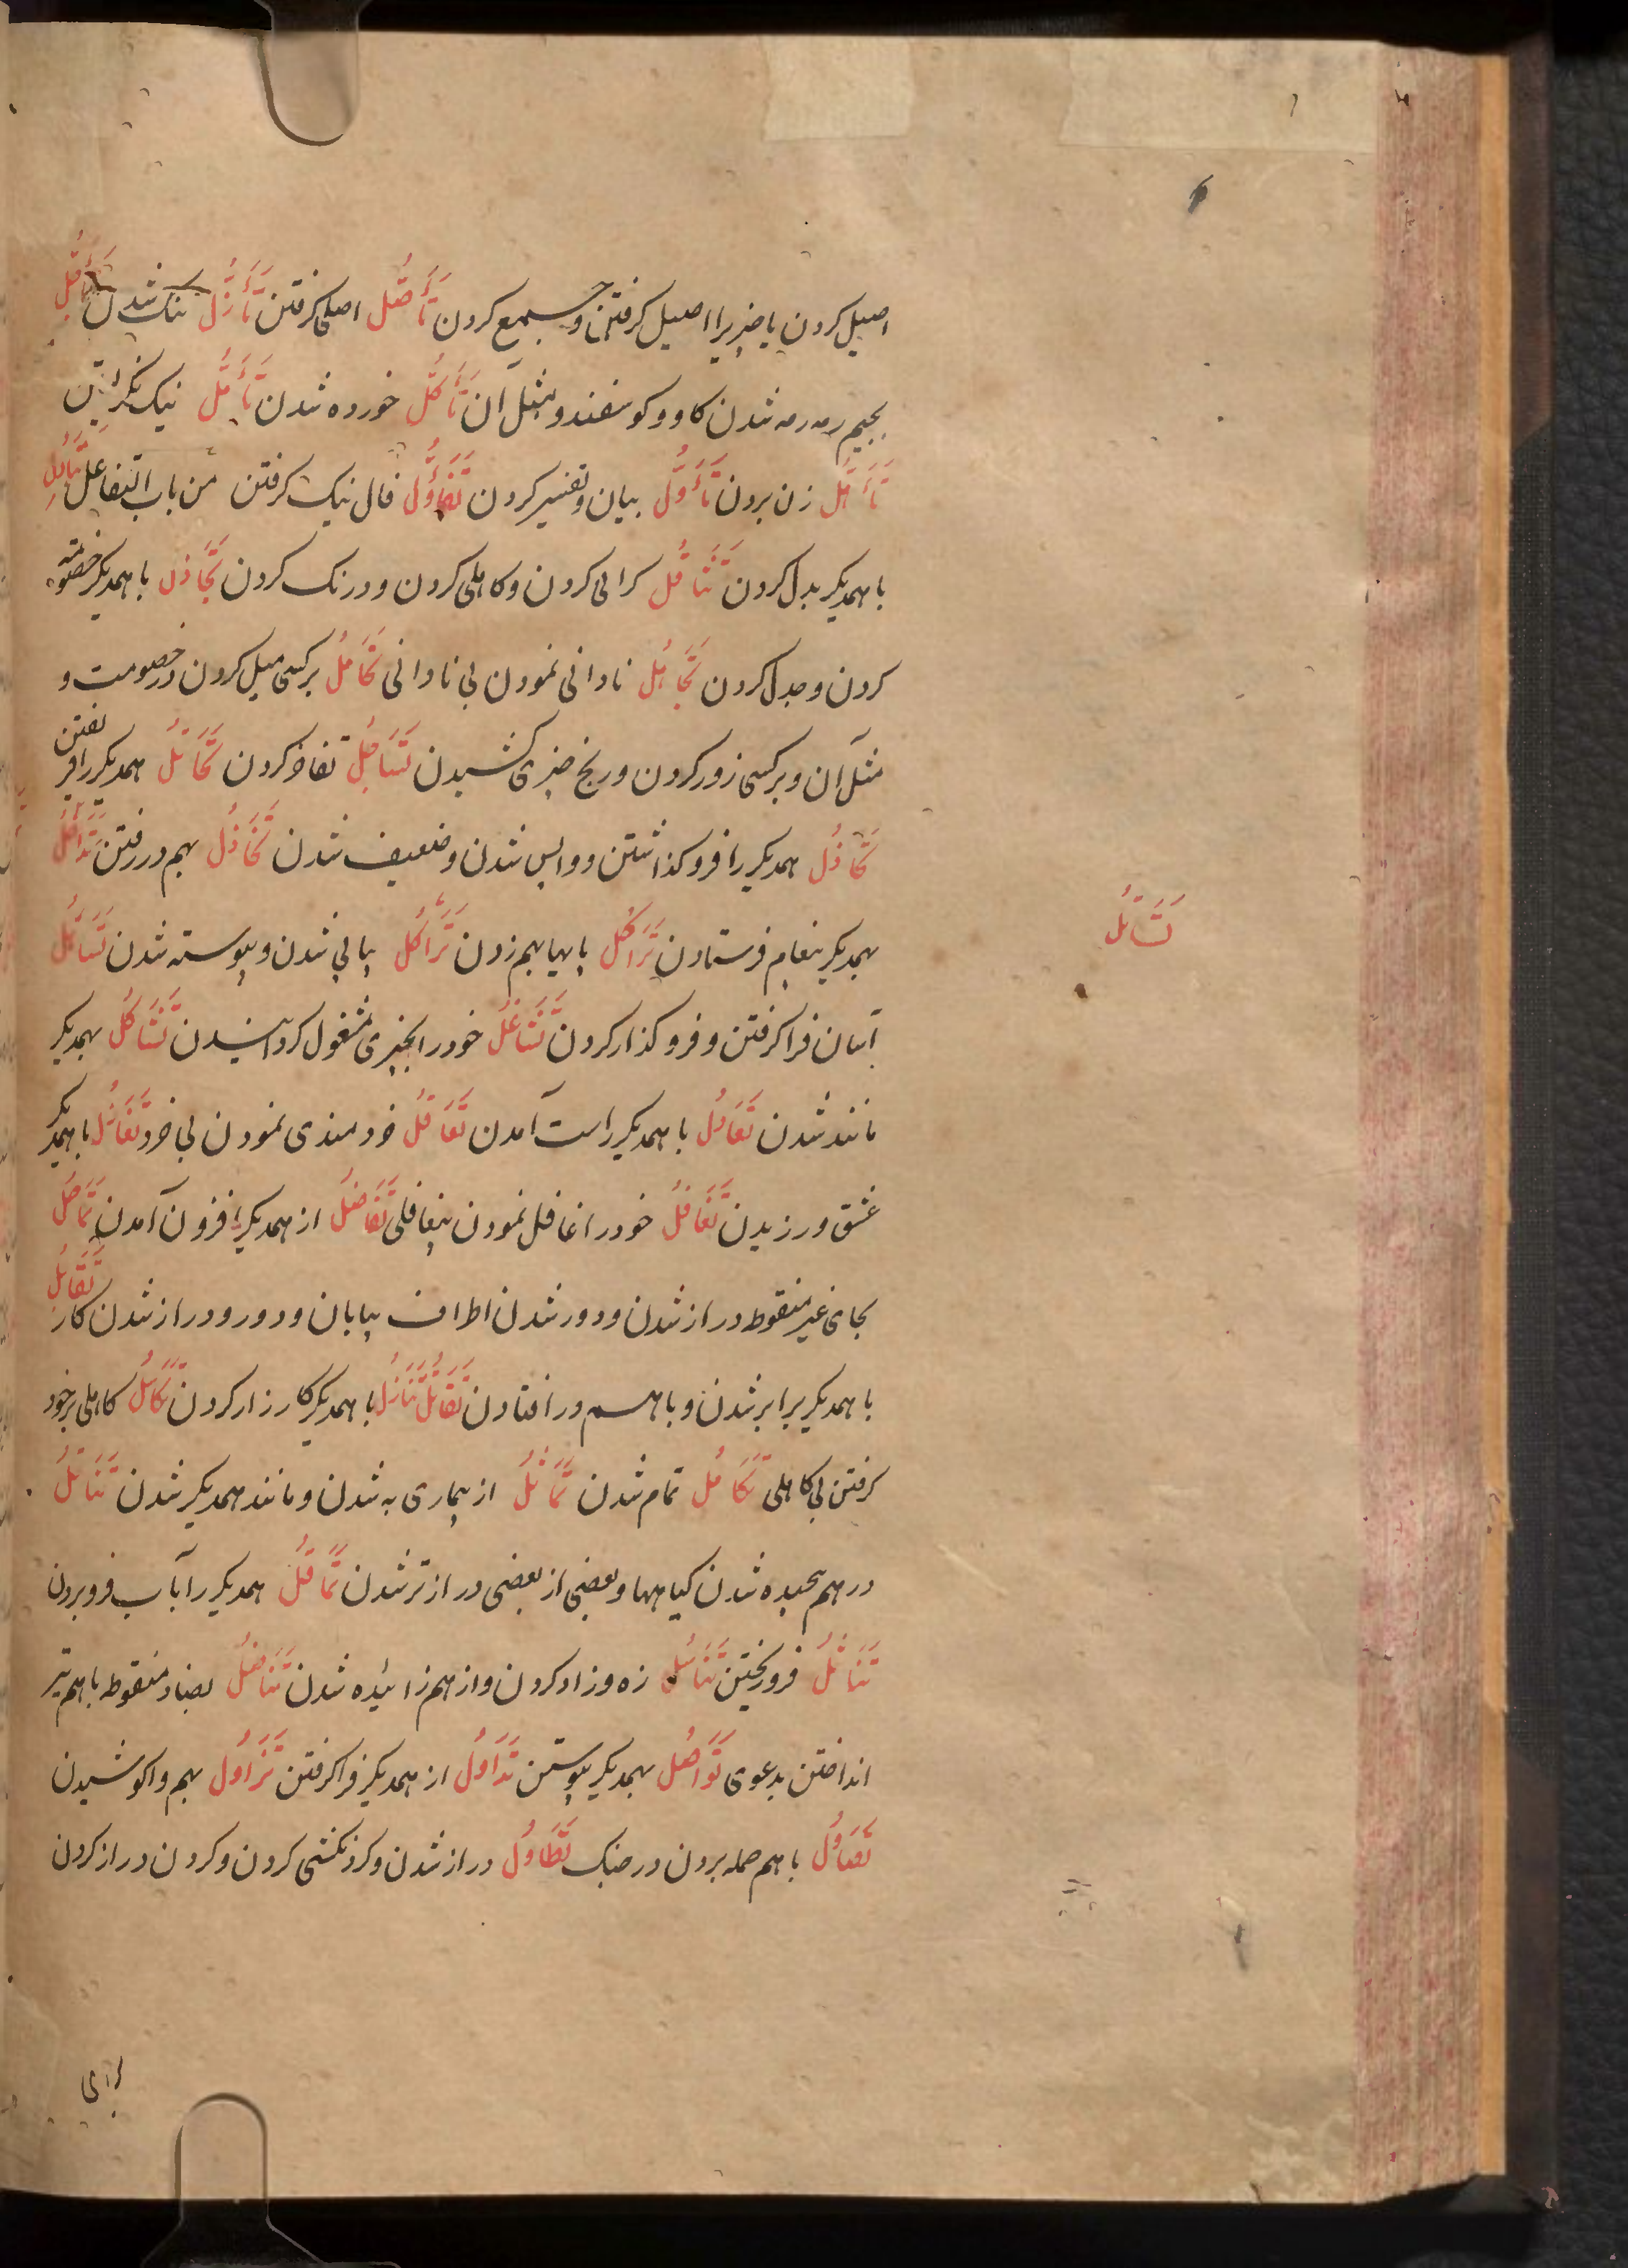 اصیل کردن یا چیزیرا اصیل کرفتن و جمع کردن تَأَصُّل اصلی کرفتن تَأَزُّل تنک شدن
بجیم رمه رمه شدن کاو و کوسفند و مثل آن تَأَكُّل خورده شدن تَأَمُّل نیک نکریستن
تَأَهُّل زن بردن تَأَوُّل بیان و تفسیر کردن تَفَأُّول فال نیک کرفتن من باب التفاعل
با همدیکر بدل کردن تَثَاقُل کرانی کردن و کاهلی کردن و درنک کردن تَجَادُل با همدیکر خصومت
کردن و جدل کردن تَجَاهُل نادانی نمودن بی نادانی تَحَامُل بر کسی میل کردن در خصومت و
مثل آن و بر کسی زور کردن و رنج چیزی کشیدن تَسَاجُل تفاخر کردن تَخَاتُل همدیکر را فریفتن
تَخَاذُل همدیکر را فرو کذاشتن و واپس شدن و ضعیف شدن تَدَاخُل بهم در رفتن تَرَاسُل
بهمدیکر پیغام فرستادن تَرَاكُل پایها بهم زدن تَرَاكُل پیاپی شدن و پیوسته شدن تَسَاهُل
تَسَائُل
آسان فرا کرفتن و فرو کذار کردن تَشَاغُل خود را بچیزی مشغول کردانیدن تَشَاكُل بهمدیکر
مانند شدن تَعَادُل با همدیکر راست آمدن تَعَاقُل خردمندی نمودن بی خرد تَغَازُل با همدیکر
عشق ورزیدن تَغَافُل خود را غافل نمودن بیغافلی تَفَاضُل از همدیکر افزون آمدن تَمَاحُل
بحای غیر منقوط دراز شدن و دور شدن اطراف بیابان و دور و دراز شدن کار تَقَابُل
با همدیکر برابر شدن و باهم در افتادن تَقَاتُل تَنَازُل با همدیکر کارزار کردن تَكَاسُل کاهلی بر خود
کرفتن بی کاهلی تَكَامُل تمام شدن تَمَاثُل از بیماری به شدن و مانند همدیکر شدن تَنَاتُل
در هم پیچیده شدن کیاهها و بعضی از بعضی درازتر شدن تَمَاقُل همدیکر را بآب فرو بردن
تَنَاثُل فرو ریختن تَنَاسُل زه و زاد کردن و از هم زائیده شدن تَنَاضُل بضاد منقوطه با هم تیر
انداختن بدعوی تَوَاصُل بهمدیکر پیوستن تَدَاوُل از همدیکر فرا کرفتن تَزَاوُل بهم واکوشیدن
تَصَاوُل با هم حمله بردن در جنک تَطَاوُل دراز شدن و کردنکشی کردن و کردن دراز کردن
برای